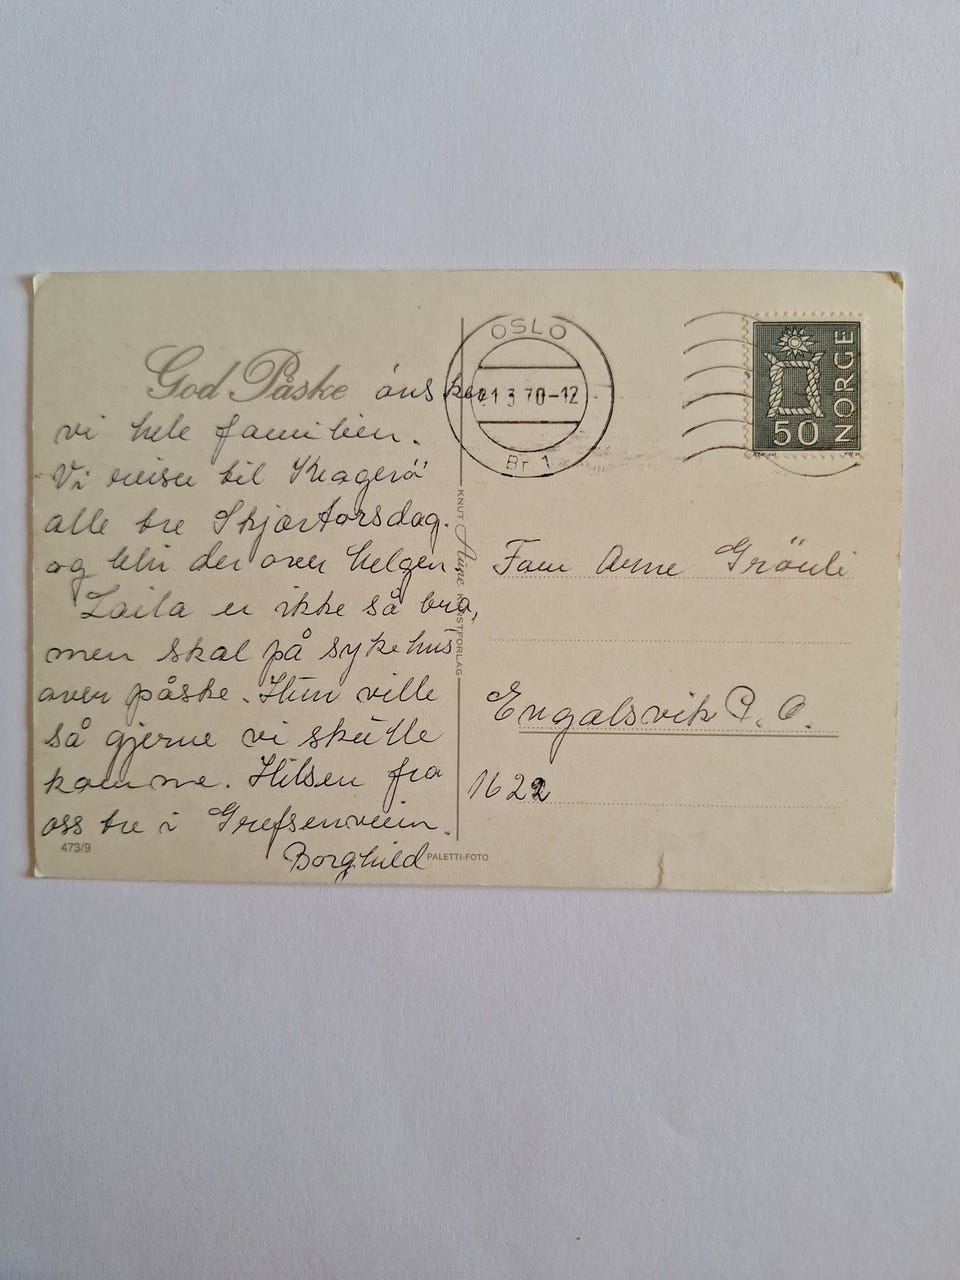 God Påske önsker
vi hele familien.
Vi reiser til Kragerö
alle tre Skjærtorsdag.
og blir der over helgen.
Laila er ikke så bra,
men skal på sykehus
over påske. Hun ville
så gjerne vi skulle
komme. Hilsen fra
oss tre i Grefsenveien.
Borghild
473/9
PALETTI-FOTO
KNUT Aune KUNSTFORLAG
OSLO
21 3 70-12
Br. 1
NORGE
50
Fam Arne Grönli
Engalsvik P.O.
1622